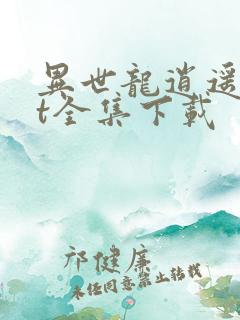 異世龍逍遥
t全集下載
祁健廉
未任同意禁止转载